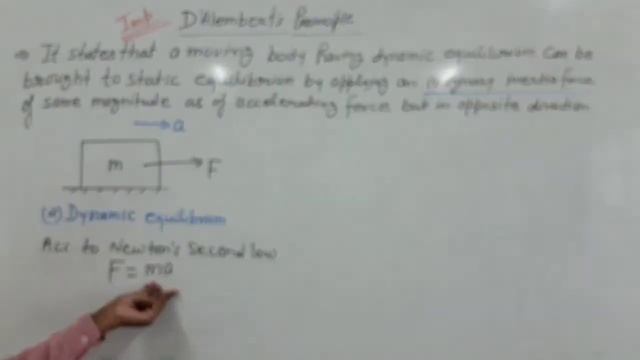 Imp. D'Alembert's Principle
⇒ It states that a moving body having dynamic equilibrium can be
brought to static equilibrium by applying an imaginary inertia force
of same magnitude as of accelerating force but in opposite direction
a
m F
(a) Dynamic equilibrium
Acc to Newton's Second law
F = ma